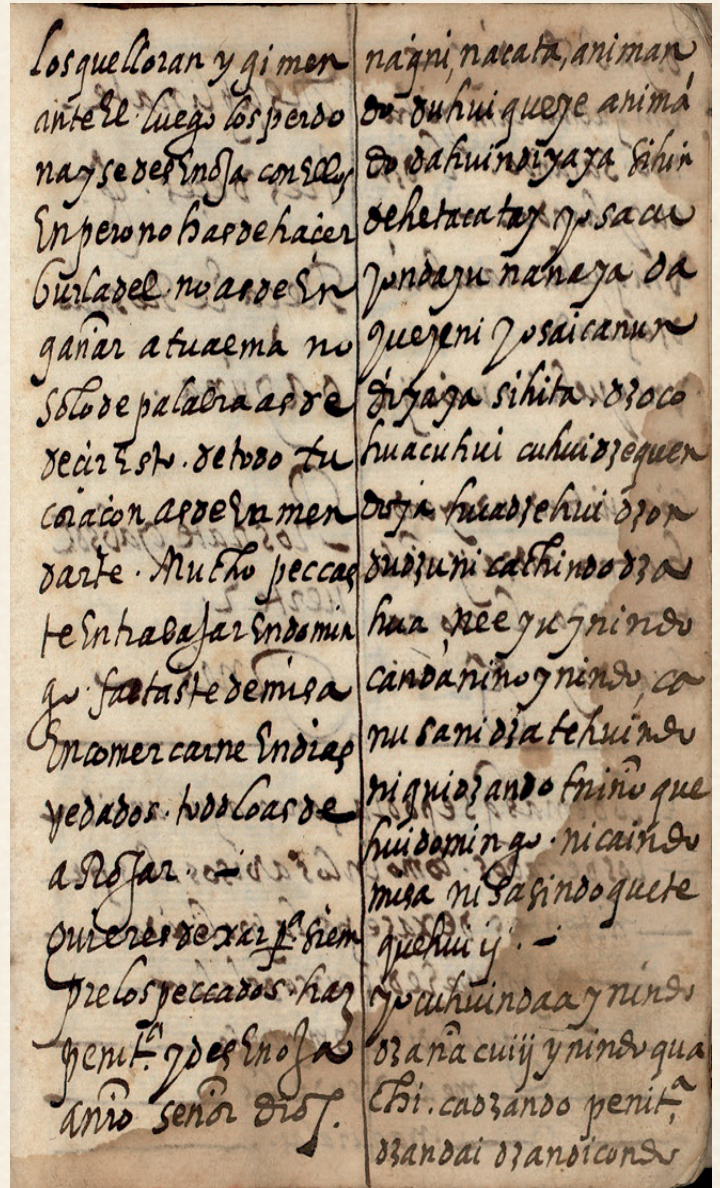 los que lloran y gimen
ante El. luego los perdo
na y se desEnoJa con Ellos
Enpero no has de hacer
burla del. no as de En
gañar a tu aema no
Solo de palabra as de
decir Esto. de todo tu
coraçon as de En men
darte. Mucho peccas
te En trabaJar En domin
go. faltaste de misa
En comer carne En dias
vedados. todo lo as de
a RoJar. —
quieres dexar pª siem
pre los peccados. haz
penit.ª y desEnoJa
a nr̃o señor dios.
nágni, nacata, animan
do duhui queye animá
do dahuindiyaya Sihin
dehetacatay yosacu
yondayu nanaya da
queyeni yosaicanun
diyaya sihita. dzoco
huacuhui cuhuidzequen
doya huadzehui dzon
dudzuni cachindo dza
hua, ñee yuynindo
candá nino ynindo, ca
nu sani dzatehuindo
niquidzando tniño que
hui domingo. nicaindo
misa nisasindo quete
quehui ij. —
yocuhuindaa ynindo
dzaña cuiij ynindo qua
chi. cadzando penit.ª
dzandai dzandicondo